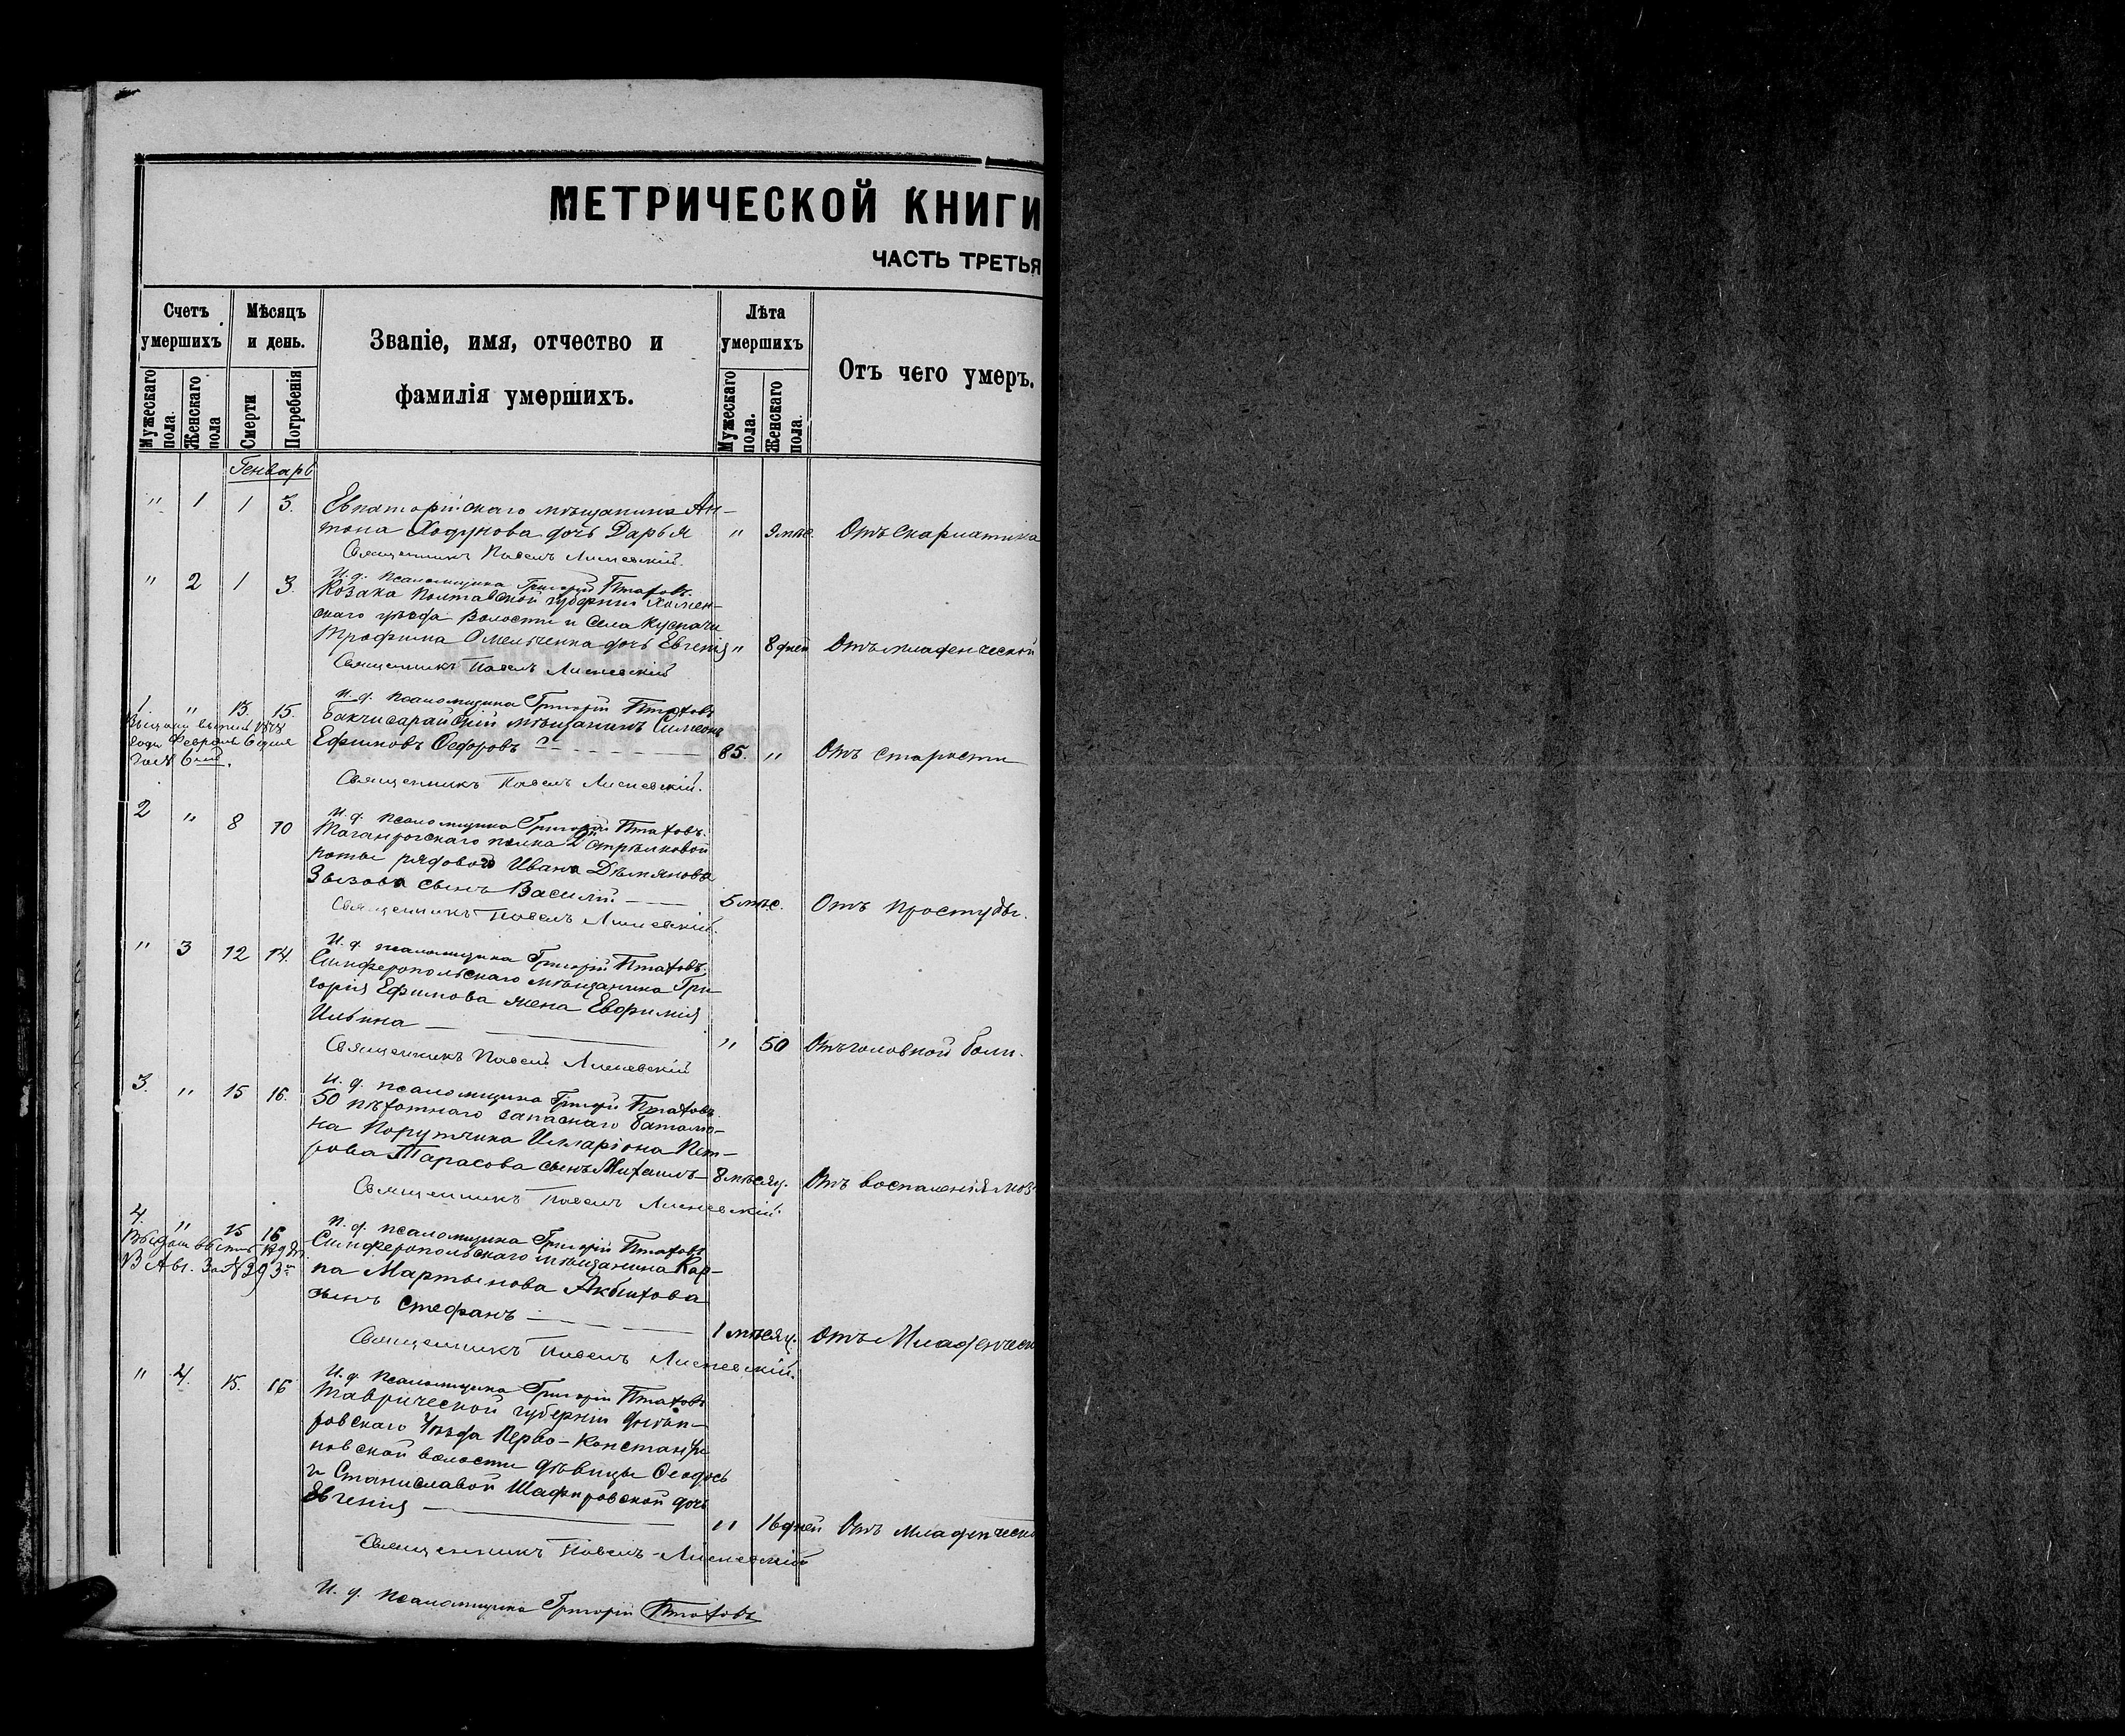 МЕТРИЧЕСКОЙ КНИГИ
ЧАСТЬ ТРЕТЬЯ
Счетъ умершихъ
Мужескаго пола.
Женскаго пола
Мѣсяцъ и день.
Смерти
Погребенія
Званіе, имя, отчество и
фамилія умершихъ.
Лѣта умершихъ
Мужескаго пола.
Женскаго пола.
Отъ чего умеръ.
Генварь
" 1 1 3. Евпаторійскаго мѣщанина Ан-
тона Ходунова дочь Дарья " 9 мѣс. Отъ Скарлатина
Священникъ Павелъ Лисневскій.
И. д. Псаломщика Григорій Птаховъ.
" 2 1 3. Козака Полтавской губерніи
скаго уѣзда Волости и Села
Трофима Омельченка дочь Евгенія " 8 дней Отъ младенческой
Священникъ Павелъ Лисневскій
И. д. Псаломщика Григорій Птаховъ
1. " 13. 15. Бакчисарайскій мѣщанинъ Симеонъ
Ефимовъ Федоровъ 85. " Отъ старости
года Февраля 6 дня
за № 6
Священникъ Павелъ Лисневскій.
И. д. Псаломщика Григорій Птаховъ.
2 " 8 10 Таганрогскаго полка 2й Стрѣлковой
роты рядового Ивана Демянова
Зызова сынъ Василій 5 мѣс. Отъ простуды.
Священникъ Павелъ Лисневскій.
И. д. псаломщика Григорій Птаховъ.
" 3 12 14. Симферопольскаго мѣщанина Гри-
горія Ефимова жена Евфимія
Ильина " 50 Отъ головной боли.
Священникъ Павелъ Лисневскій
И. д. псаломщика Григорій Птаховъ.
3. " 15 16. 50 пѣхотнаго запаснаго баталіо-
на Поручика Илларіона Пет-
рова Тарасова сынъ Михаилъ 8 мѣсяц. Отъ воспаленія моз-
Священникъ Павелъ Лисневскій.
И. д. псаломщика Григорій Птаховъ
4. " 15 16 Симферопольскаго мѣщанина Кар-
па Мартынова Акбитова
сынъ Стефанъ 1 мѣсяц. Отъ Младенческ
Священникъ Павелъ Лисневскій.
И. д. Псаломщика Григорій Птаховъ
" 4. 15. 16 Таврической губерніи Днѣп-
ровскаго Уѣзда Перво-Константи
новской волости дѣвицы Феодось
и Станиславой Шафировской дочь
Евгенія " 16 дней Отъ младенческо
Священникъ Павелъ Лисневскій
И. д. Псаломщика Григорій Птаховъ